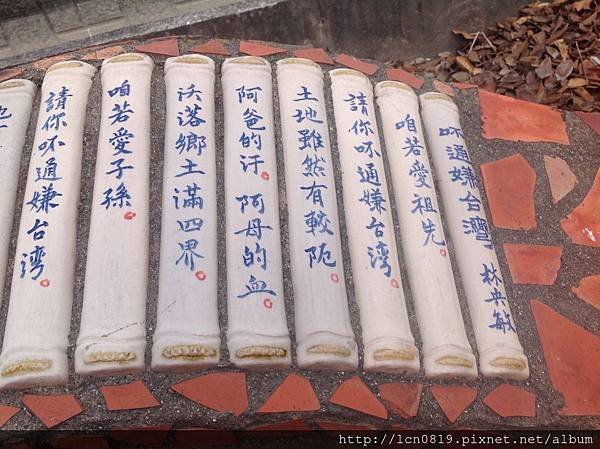 吥通嫌台灣 林央敏
咱若愛祖先。
請你吥通嫌台灣。
土地雖然有較阨。
阿爸的汗。阿母的血。
沃落鄉土滿四界。
咱若愛子孫。
請你吥通嫌台灣。
http://lcn0819.pixnet.net/album